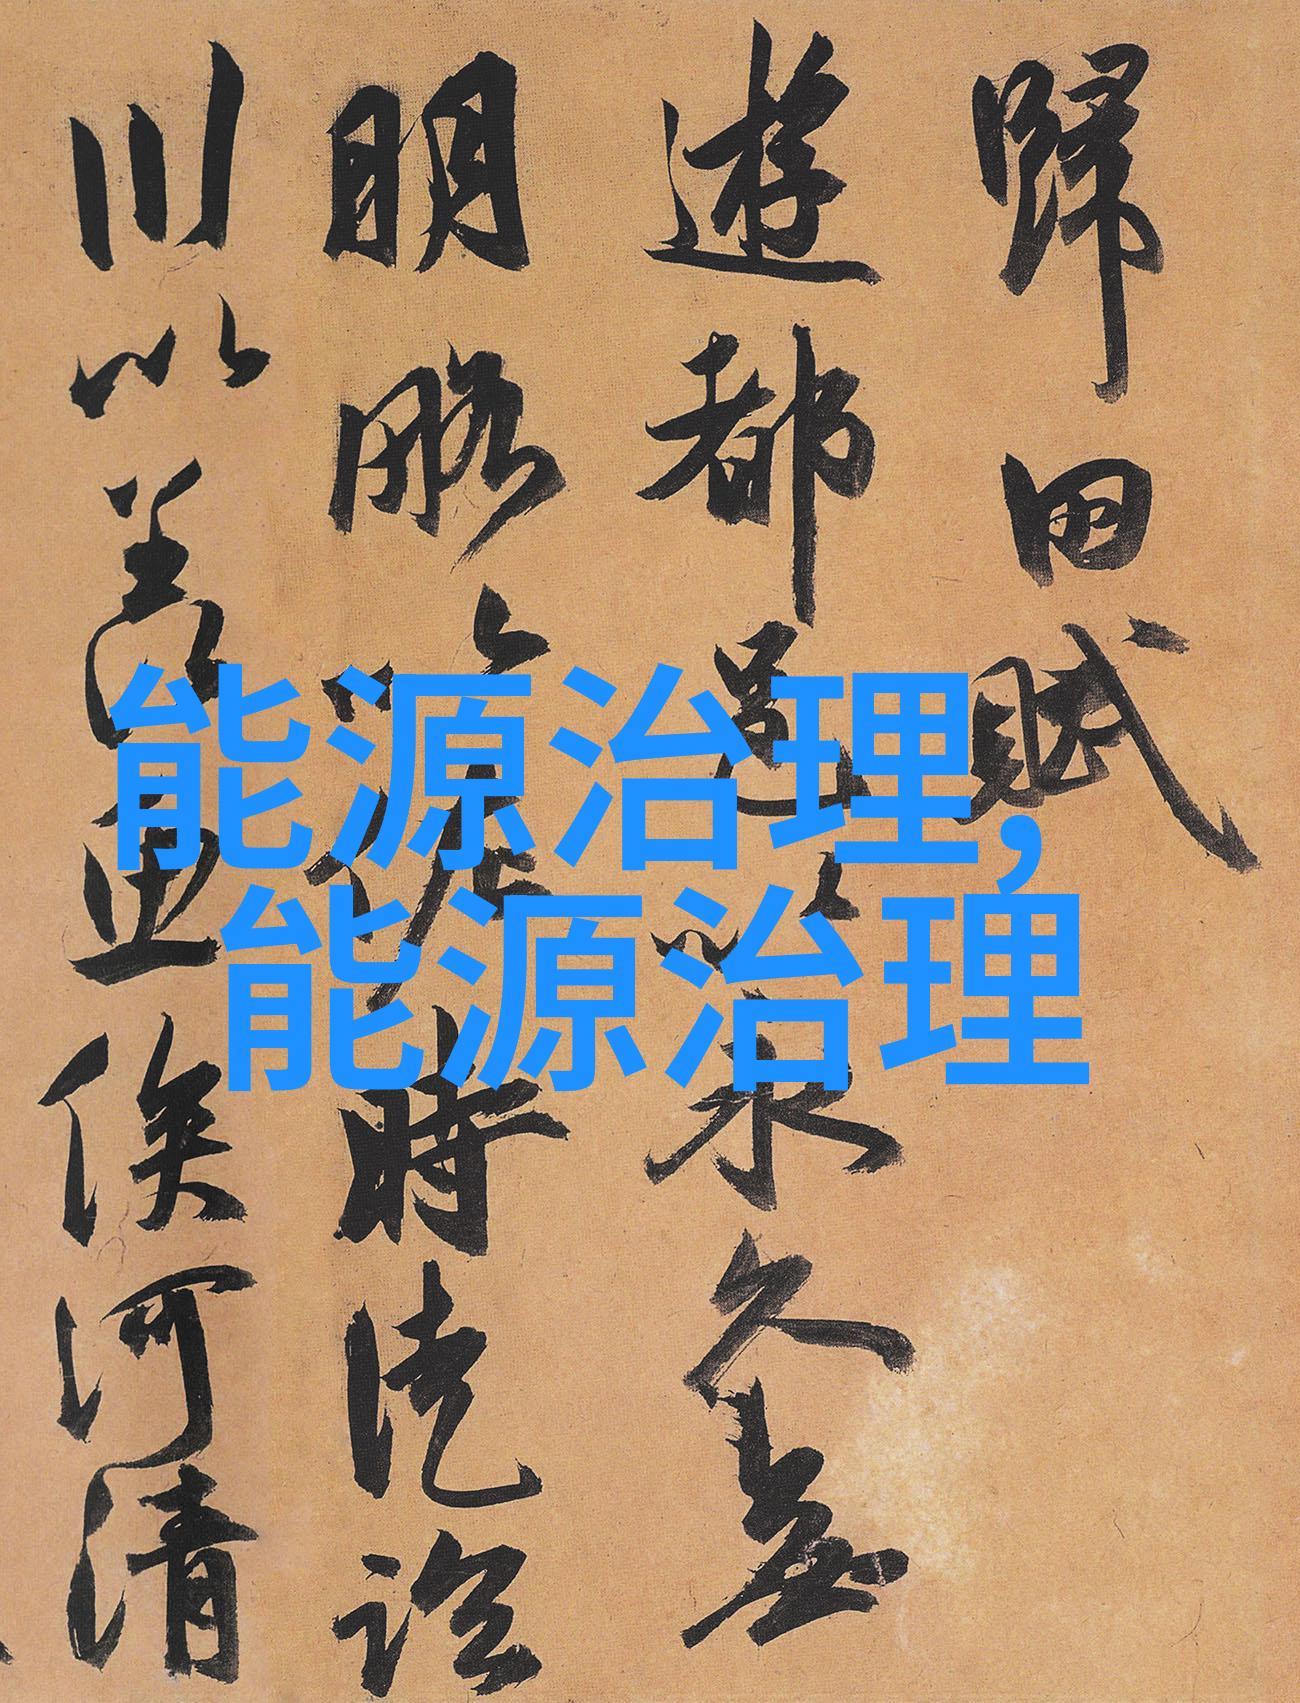 歸田賦
遊都邑以永久無
明略以佐時徒臨
川以羨魚俟河清
能源治理,
能源治理